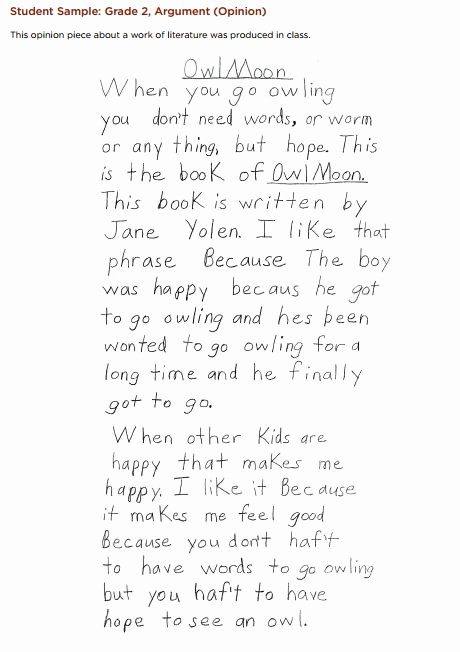 Student Sample: Grade 2, Argument (Opinion)
This opinion piece about a work of literature was produced in class.
Owl Moon
When you go owling
you don't need words, or worm
or any thing, but hope. This
is the book of Owl Moon.
This book is written by
Jane Yolen. I like that
phrase Because The boy
was happy becaus he got
to go owling and hes been
wonted to go owling for a
long time and he finally
got to go.
When other Kids are
happy that makes me
happy. I like it Because
it makes me feel good
Because you don't haf't
to have words to go owling
but you haf't to have
hope to see an owl.